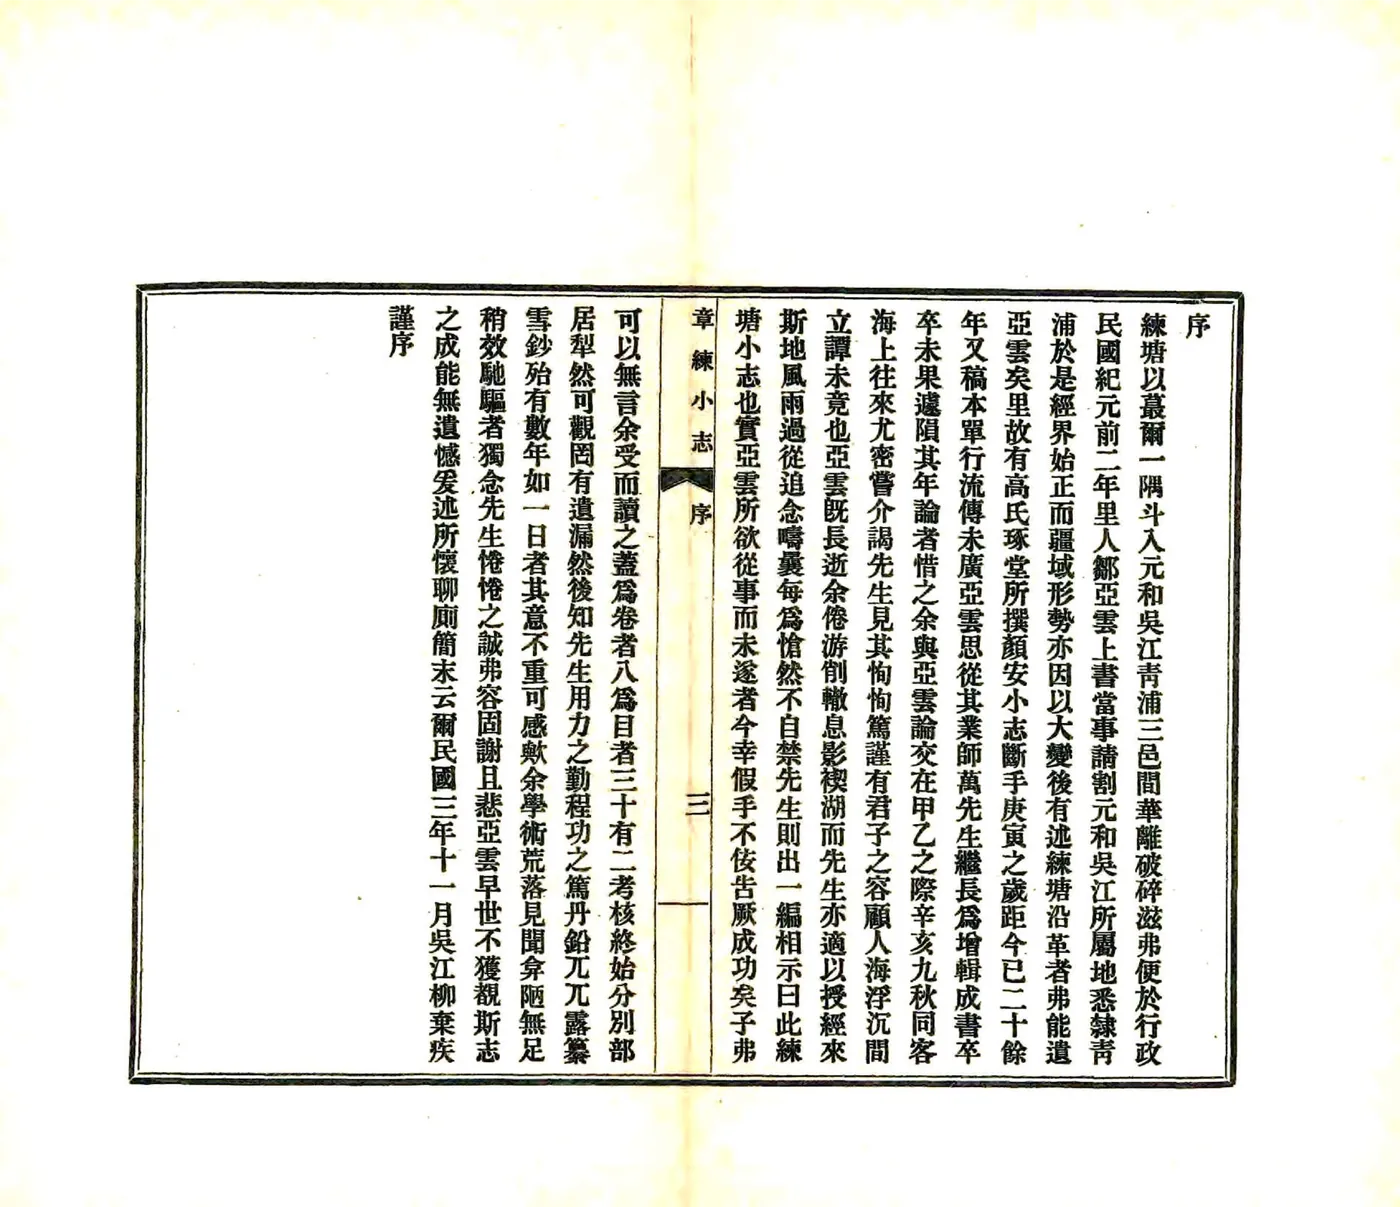 序
練塘以蕞爾一隅斗入元和吳江靑浦三邑間華離破碎滋弗便於行政
民國紀元前二年里人鄒亞雲上書當事請割元和吳江所屬地悉隸靑
浦於是經界始正而疆域形勢亦因以大變後有述練塘沿革者弗能遺
亞雲矣里故有高氏琢堂所撰顏安小志斷手庚寅之歲距今已二十餘
年又稿本單行流傳未廣亞雲思從其業師萬先生繼長爲增輯成書卒
卒未果遽隕其年論者惜之余與亞雲論交在甲乙之際辛亥九秋同客
海上往來尤密嘗介謁先生見其恂恂篤謹有君子之容顧人海浮沉間
立譚未竟也亞雲旣長逝余倦游削轍息影禊湖而先生亦適以授經來
斯地風雨過從追念疇曩每爲愴然不自禁先生則出一編相示曰此練
塘小志也實亞雲所欲從事而未遂者今幸假手不佞告厥成功矣子弗
章練小志
序
三
可以無言余受而讀之蓋爲卷者八爲目者三十有二考核終始分別部
居犁然可觀罔有遺漏然後知先生用力之勤程功之篤丹鉛兀兀露纂
雪鈔殆有數年如一日者其意不重可感歟余學術荒落見聞弇陋無足
稍效馳驅者獨念先生惓惓之誠弗容固謝且悲亞雲早世不獲覩斯志
之成能無遺憾爰述所懷聊廁簡末云爾民國三年十一月吳江柳棄疾
謹序